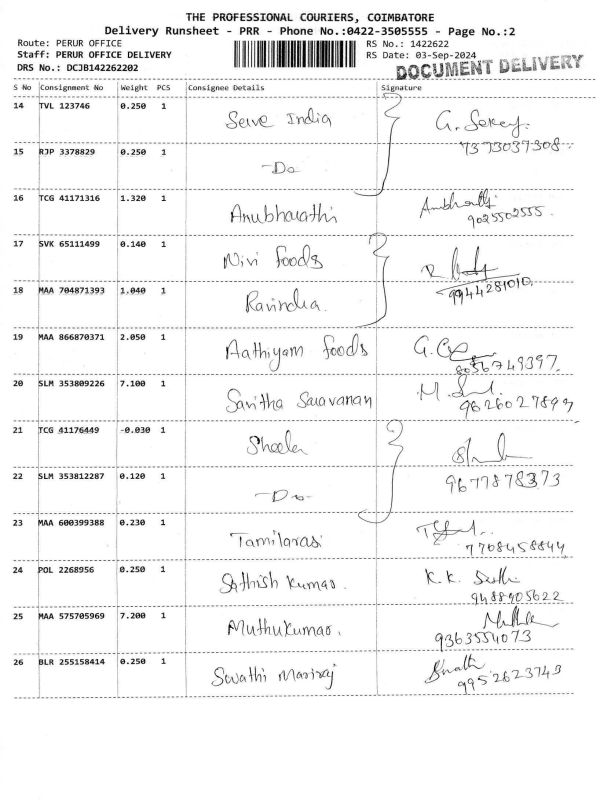 THE PROFESSIONAL COURIERS, COIMBATORE
Delivery Runsheet - PRR - Phone No.:0422-3505555 - Page No.:2
Route: PERUR OFFICE RS No.: 1422622
Staff: PERUR OFFICE DELIVERY RS Date: 03-Sep-2024
DRS No.: DCJB142262202 DOCUMENT DELIVERY
S No Consignment No Weight PCS Consignee Details Signature
14 TVL 123746 0.250 1 Serve India G. Sekey.
7373037308
15 RJP 3378829 0.250 1 -Do
16 TCG 41171316 1.320 1 Anubharathi
9025502555
17 SVK 65111499 0.140 1 Nivi foods
18 MAA 704871393 1.040 1 Ravindra. 9944281010
19 MAA 866870371 2.050 1 Aathiyam foods
8056749397
20 SLM 353809226 7.100 1 Savitha Saravanan
9626027899
21 TCG 41176449 -0.030 1 Sheela
22 SLM 353812287 0.120 1 -Do- 9677878373
23 MAA 600399388 0.230 1 Tamilarasi
7708458844
24 POL 2268956 0.250 1 Sathish Kumar. K.K.
9488905622
25 MAA 575705969 7.200 1 Muthukumar.
9363554073
26 BLR 255158414 0.250 1 Swathi Mariraj
9952623743